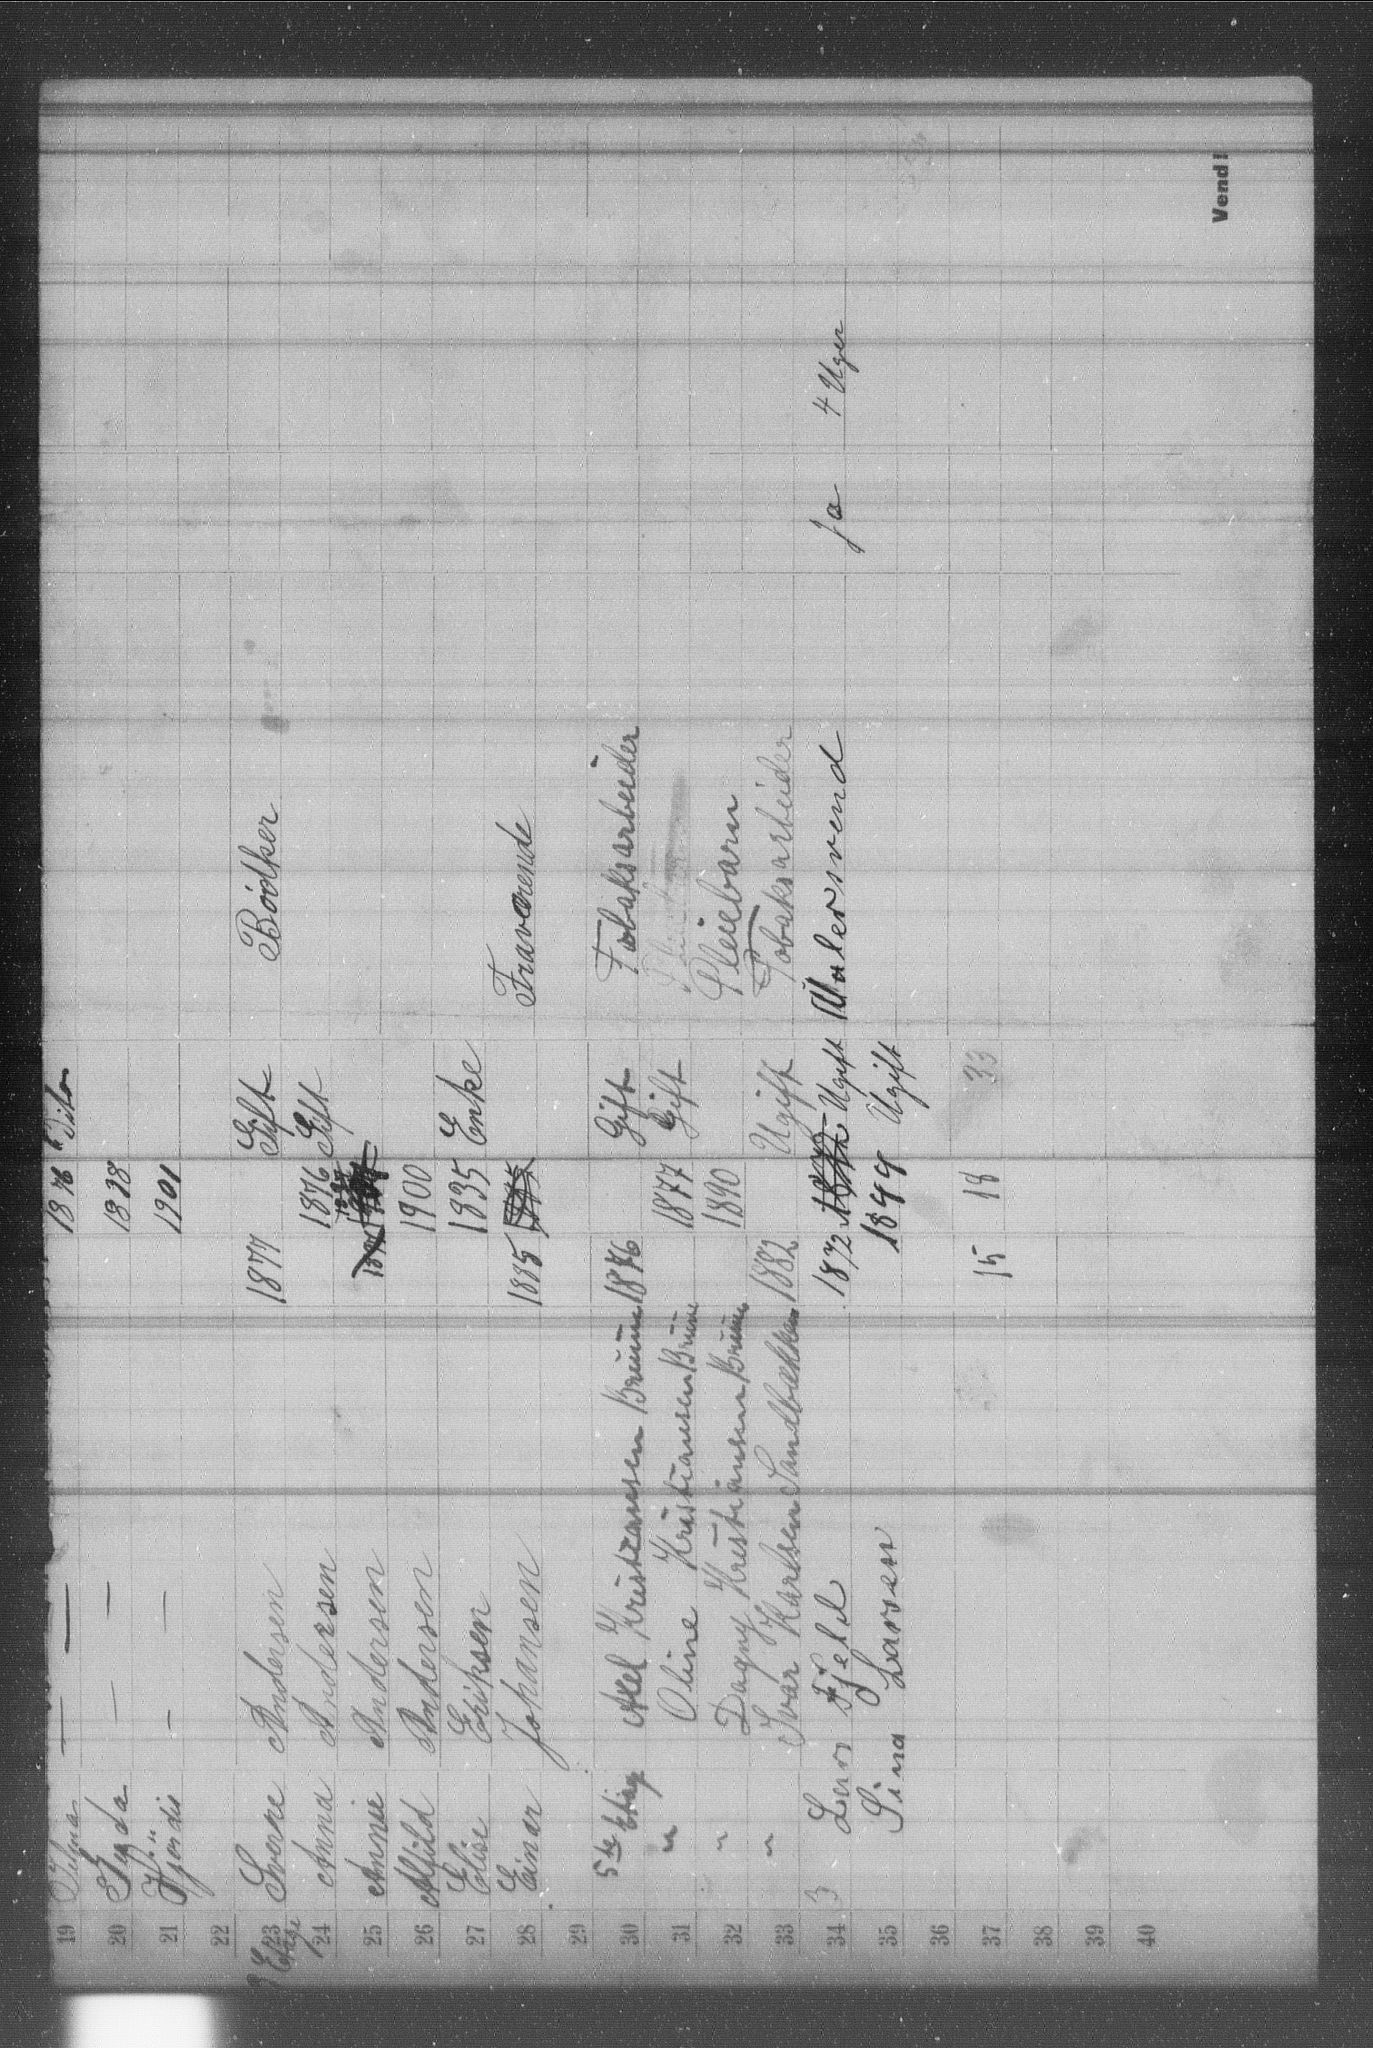 19 — — 1876 Ditto
20 Gyda — — 1898
21 Hjördis — — 1901
22
3 Etage 23 Sverre Andersen 1877 Gift Bödker
24 Anna Andersen 1876 Gift
25 Annie Andersen
26 Alfild Andersen 1900
27 Elise Eriksen 1835 Enke
28 Einar Johansen 1885 Fraværende
29
30 5te Etage Axel Kristiansen Bruun 1876 Gift Tobaksarbeider
31 " Oline Kristiansen Bruun 1877 Gift
32 " Dagny Kristiansen Bruun 1890 Pleiebarn
33 " Ivar Karlsen Sandbækken 1882 Ugift Tobaksarbeider
34 3 Lars Fjeld 1872 Ugift Malersvend Ja 4 Uger
35 Sina Larsen 1844 Ugift
36
37 15 18 33
38
39
40
Vend!